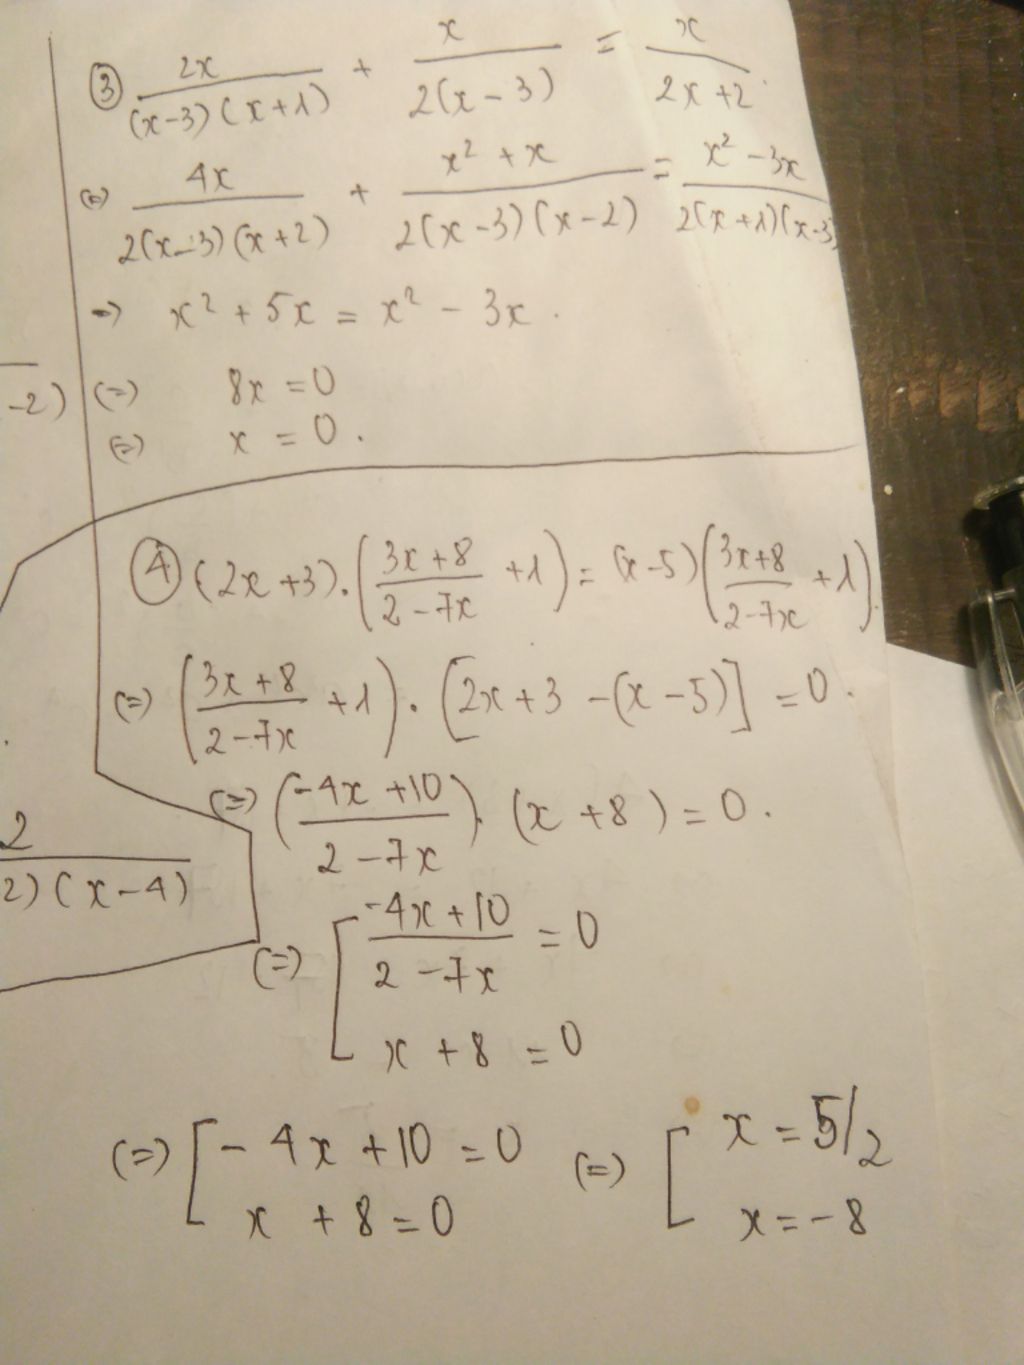 ③ 2x/((x-3)(x+1)) + x/(2(x-3)) = x/(2x+2).
(=) 4x/(2(x-3)(x+2)) + (x² + x)/(2(x-3)(x-2)) = (x² - 3x)/(2(x+1)(x-3)
=) x² + 5x = x² - 3x.
-2)
(=) 8x = 0
(=) x = 0.
④ (2x+3).((3x+8)/(2-7x) + 1) = (x-5)((3x+8)/(2-7x) + 1).
(=) ((3x+8)/(2-7x) + 1).[2x+3-(x-5)] = 0.
(=) ((-4x+10)/(2-7x)).(x+8) = 0.
2/(2)(x-4)
(=) [ (-4x+10)/(2-7x) = 0
x+8 = 0
(=) [ -4x+10 = 0 (=) [ x = 5/2
x+8 = 0 x = -8